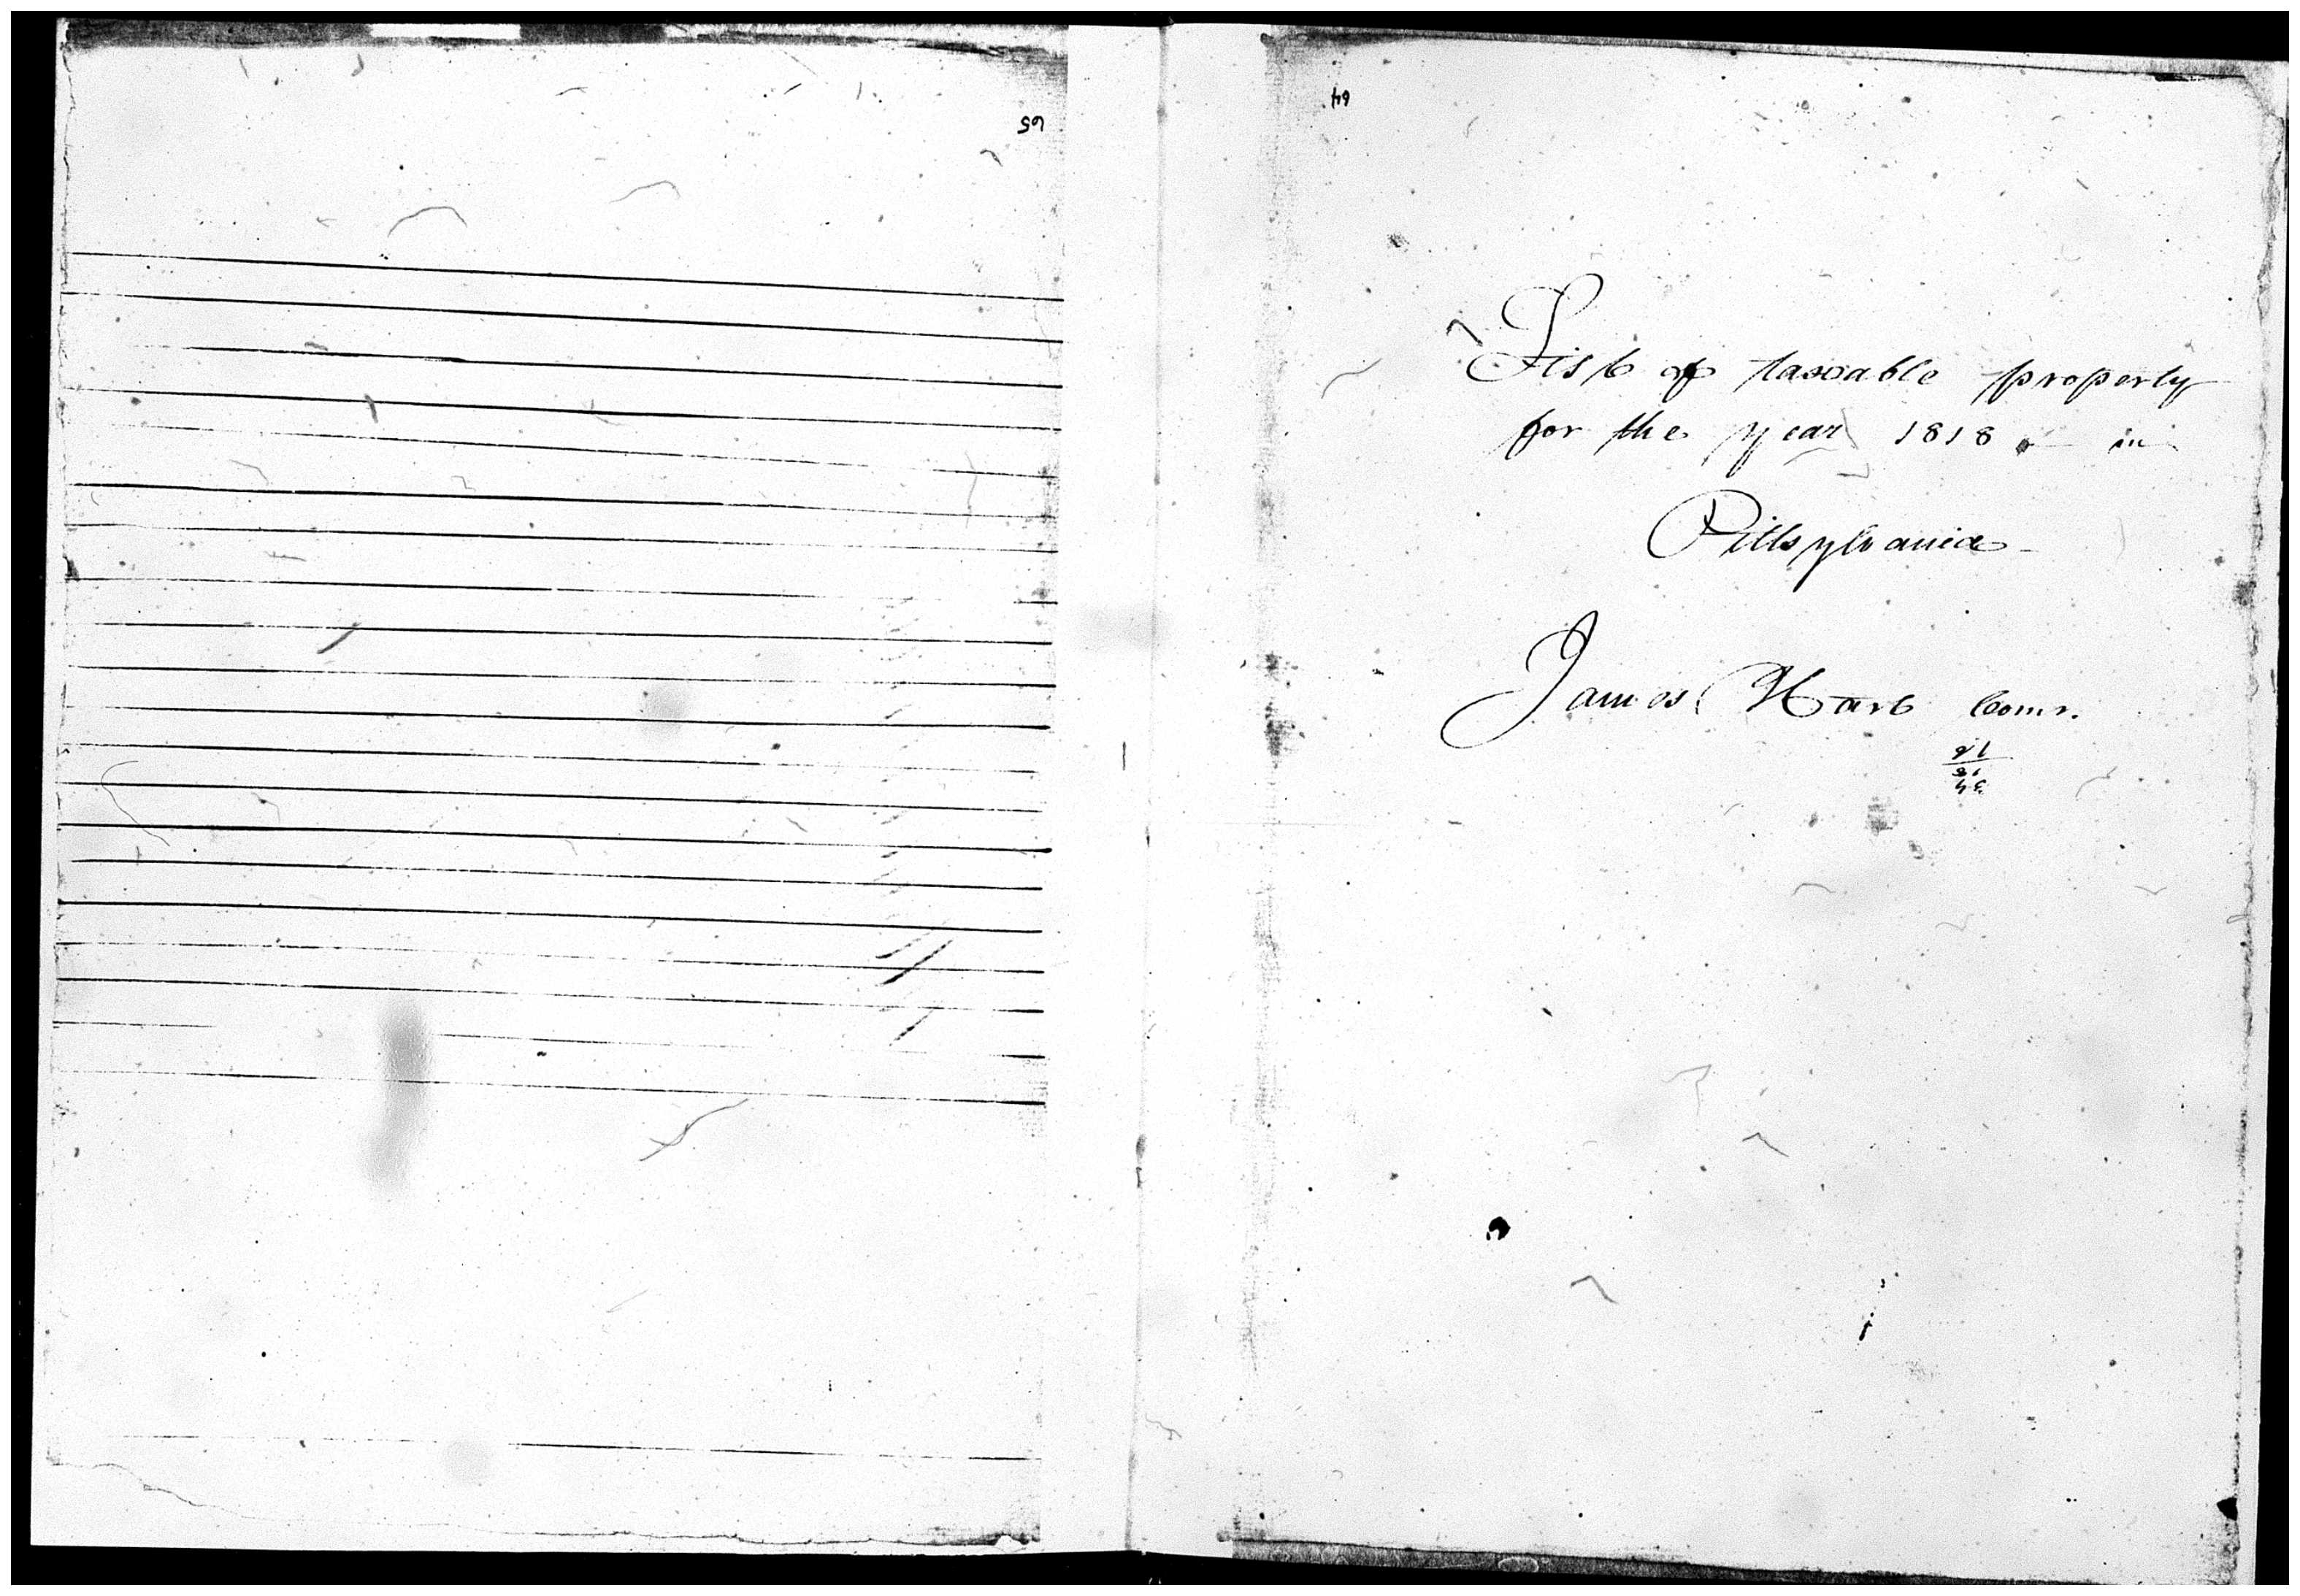 65
64
List of taxable property
for the year 1818 - in
Pittsylvania -
James Hart Comr.
34
18